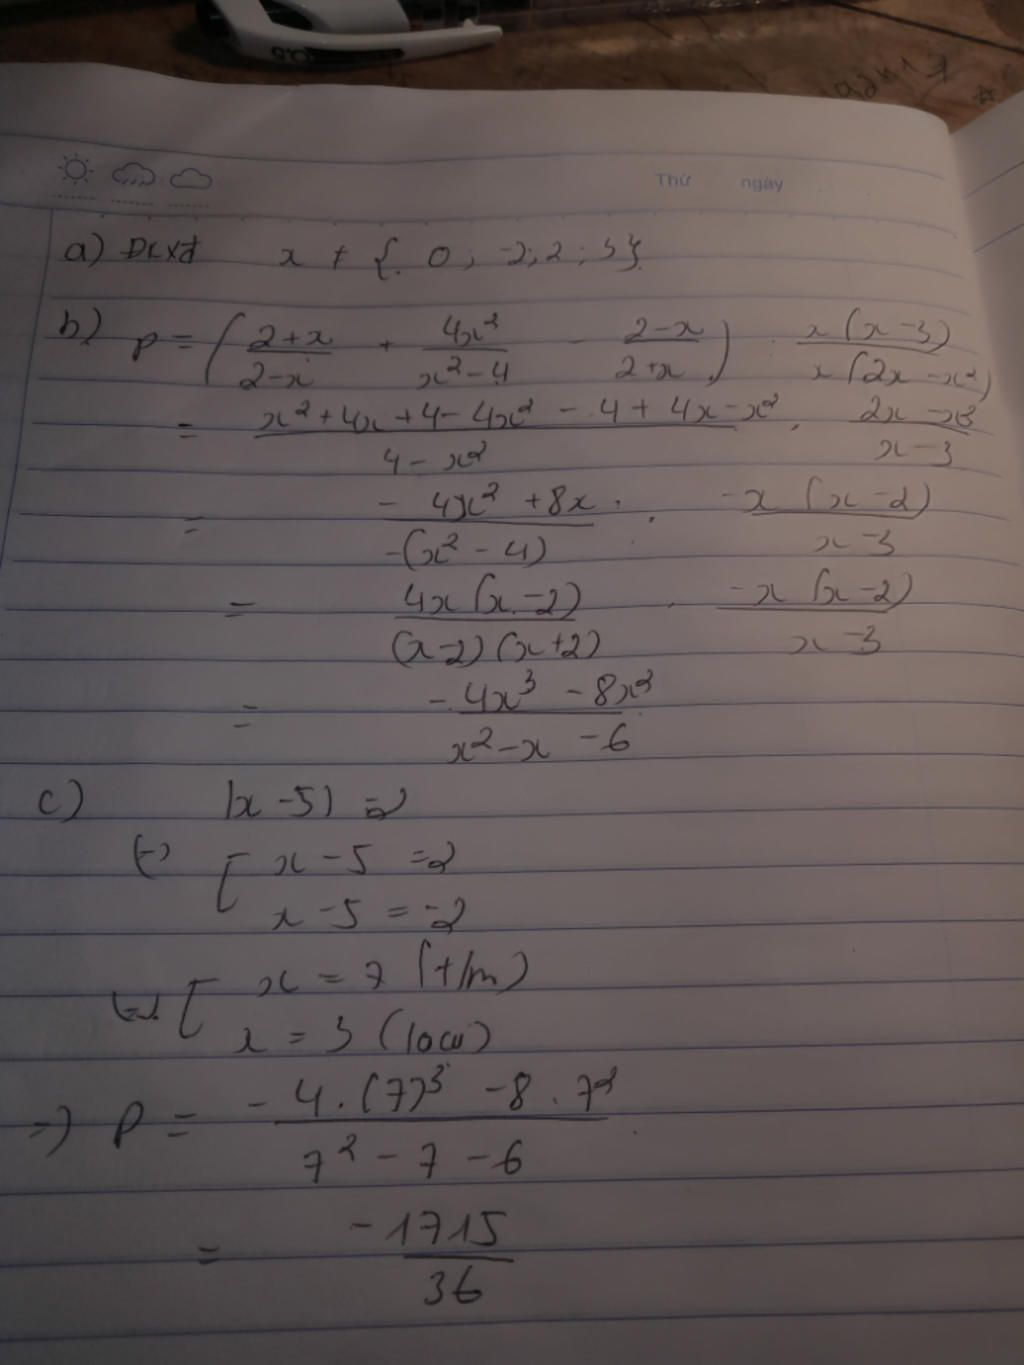 Thứ ngày
a) ĐKXĐ x ≠ { 0 ; -2 ; 2 ; 3 }
b) P = ( (2+x)/(2-x) + 4x²/(x²-4) - (2-x)/(2+x) ) : x(x-3)/x(2x-x²)
= (x²+4x+4-4x²-4+4x-x²)/(4-x²) . (2x-x²)/(x-3)
= (-4x²+8x)/(-(x²-4)) . (-x(x-2))/(x-3)
= 4x(x-2)/((x-2)(x+2)) . (-x(x-2))/(x-3)
= (-4x³-8x²)/(x²-x-6)
c) |x-5| = 2
(=) [ x-5 = 2
x-5 = -2
(=) [ x = 7 (t/m)
x = 3 (loại)
=) P = (-4.(7)³-8.7²)/(7²-7-6)
= -1715/36